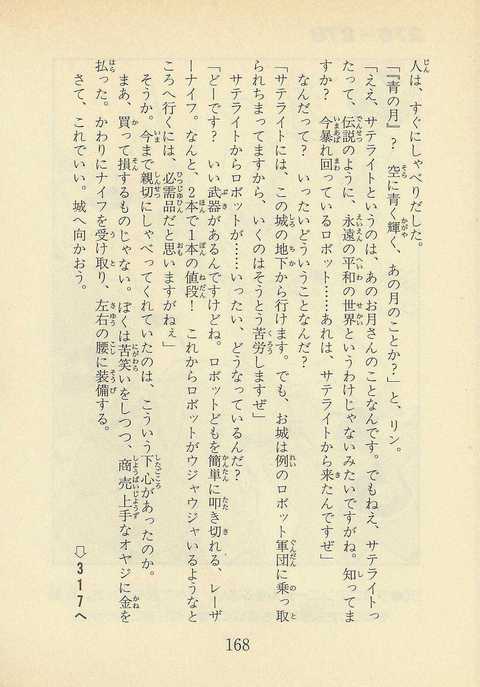 人は、すぐにしゃべりだした。
「『青の月』？　空に青く輝く、あの月のことか？」と、リン。
「ええ、サテライトというのは、あのお月さんのことなんです。でもねえ、サテライトっ
たって、伝説のように、永遠の平和の世界というわけじゃないみたいですがね。知ってま
すか？　今暴れ回っているロボット……あれは、サテライトから来たんですぜ」
なんだって？　いったいどういうことなんだ？
「サテライトには、この城の地下から行けます。でも、お城は例のロボット軍団に乗っ取
られちまってますから、いくのはそうとう苦労しますぜ」
サテライトからロボットが……いったい、どうなっているんだ？
「どーです？　いい武器があるんですけどね。ロボットどもを簡単に叩き切れる、レーザ
ーナイフ。なんと、2本で1本の値段！　これからロボットがウジャウジャいるようなと
ころへ行くには、必需品だと思いますがねぇ」
そうか。今まで親切にしゃべってくれていたのは、こういう下心があったのか。
まあ、買って損するものじゃない。ぼくは苦笑いをしつつ、商売上手なオヤジに金を
払った。かわりにナイフを受け取り、左右の腰に装備する。
さて、これでいい。城へ向かおう。
⇩317へ
168